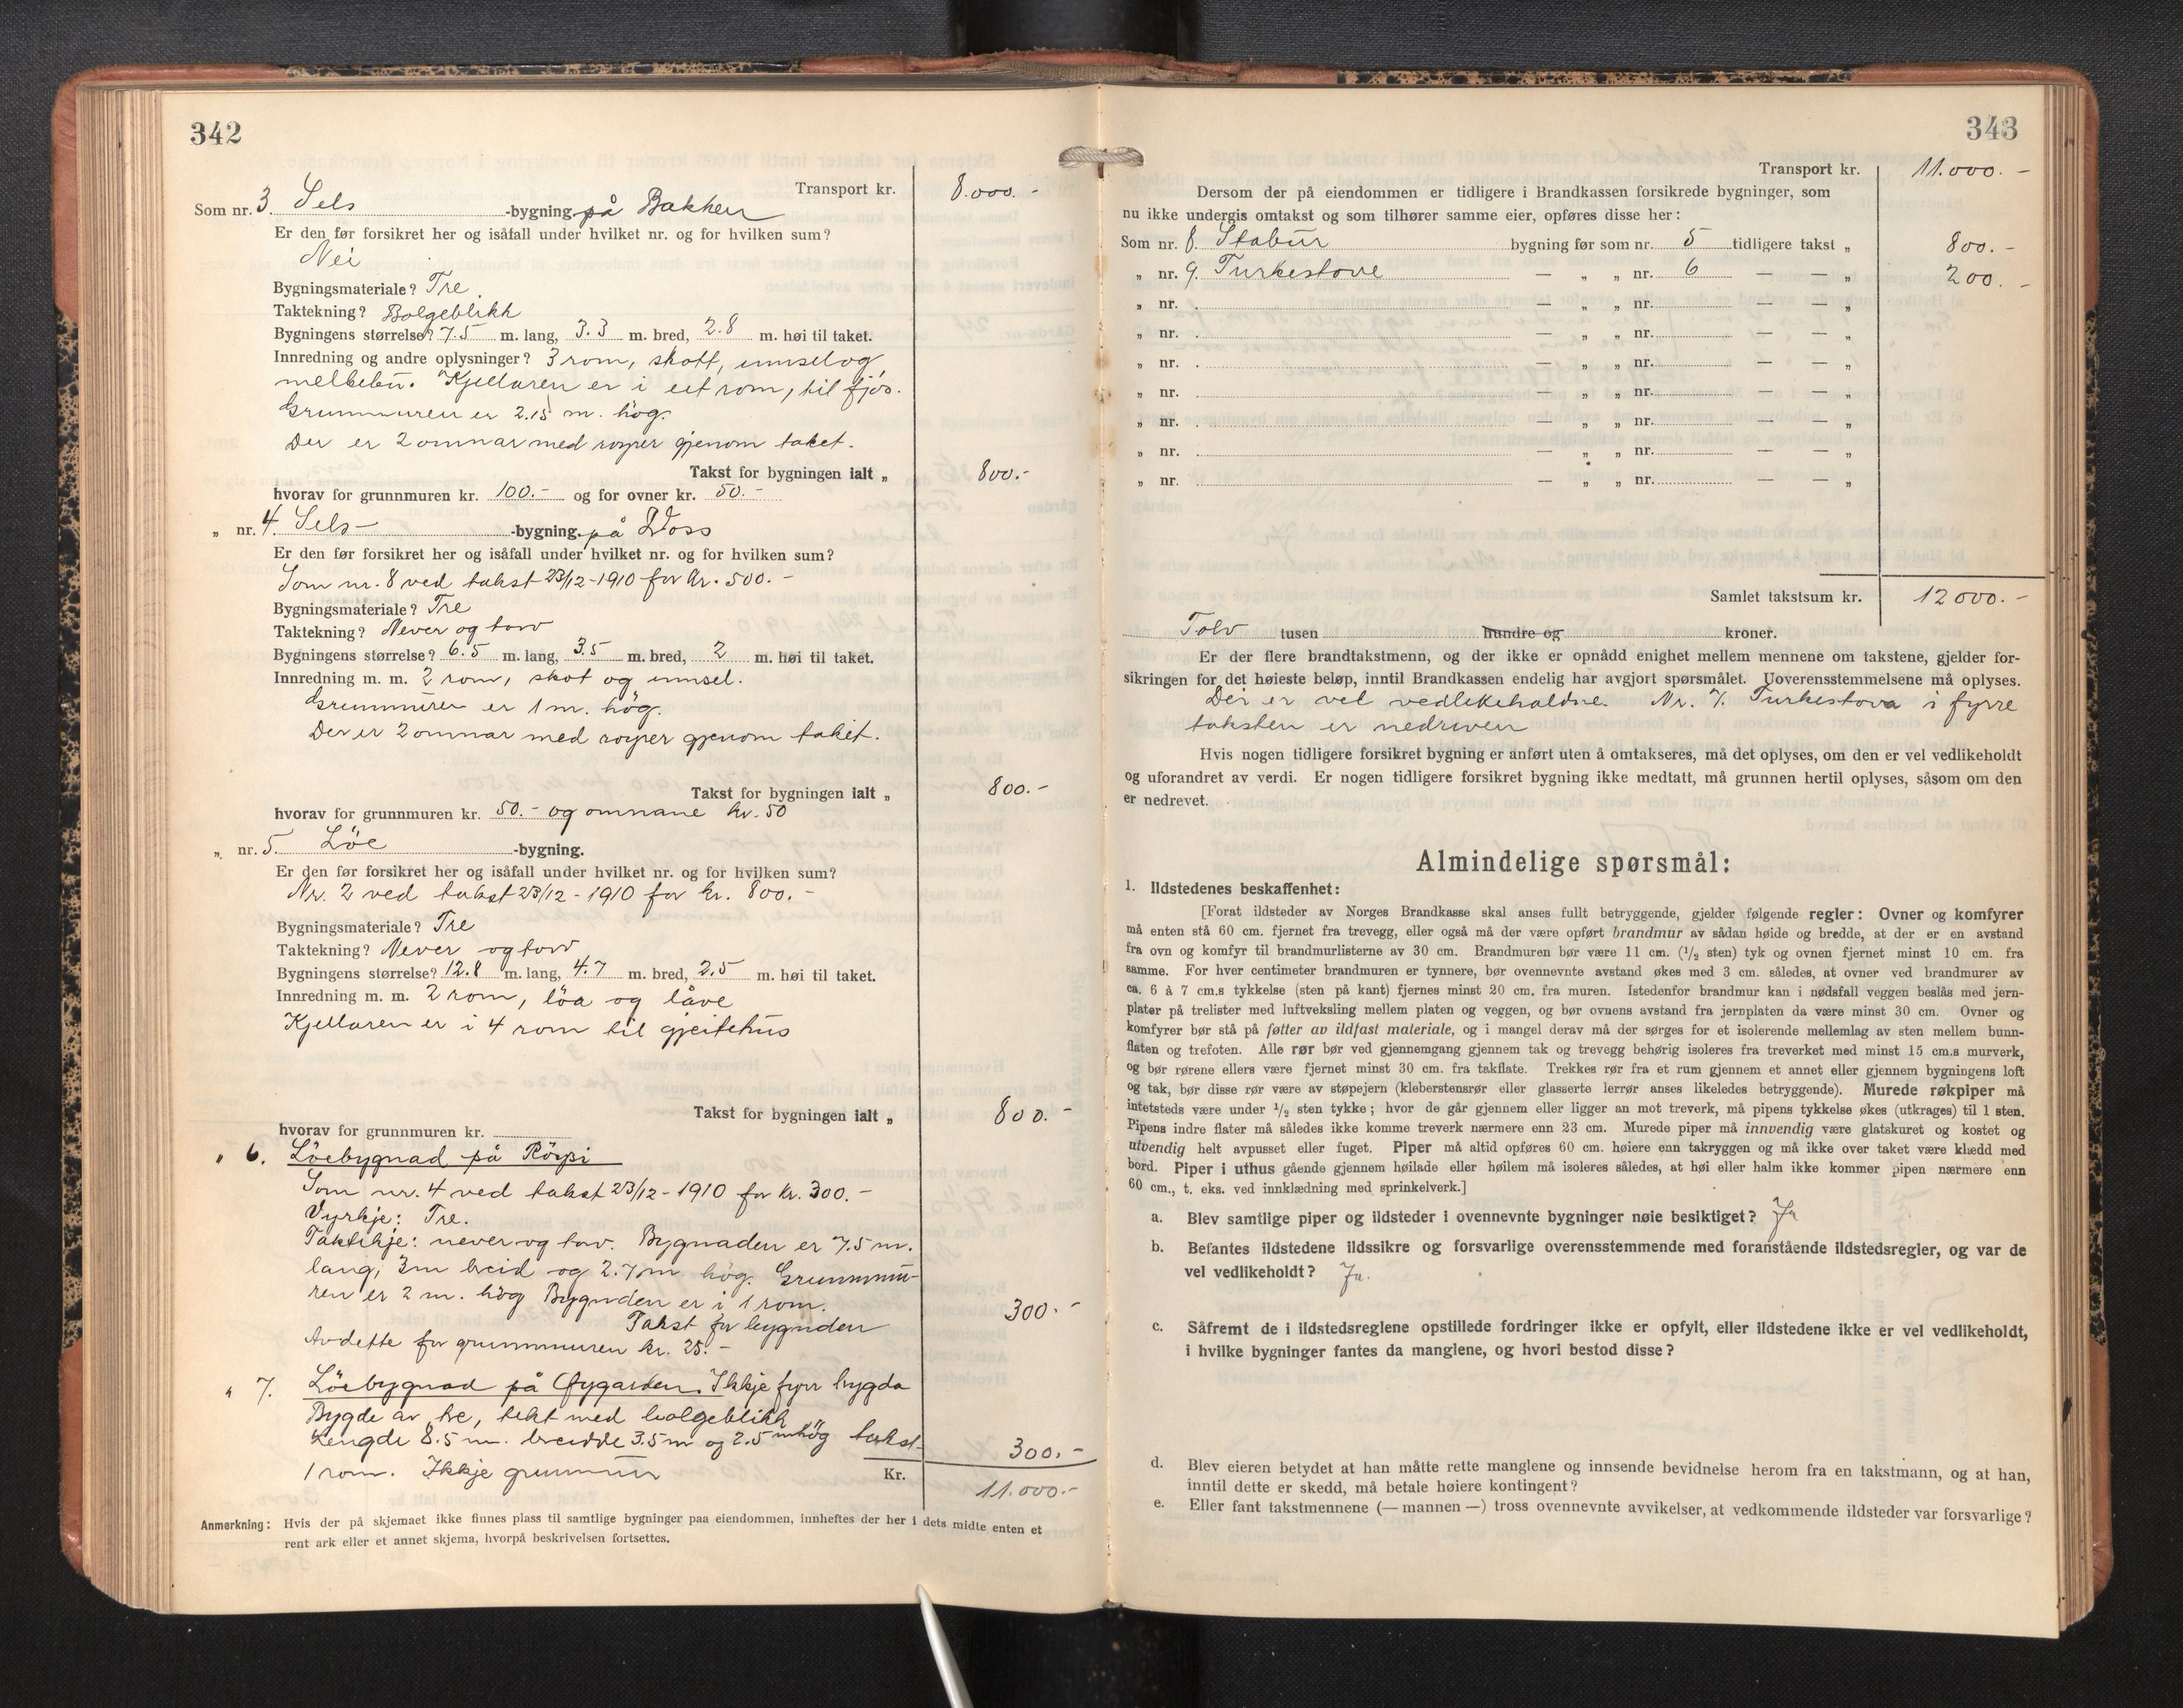 342
Transport kr. 8.000.-
Som nr. 3. Sels -bygning på Bakken
Er den før forsikret her og isåfall under hvilket nr. og for hvilken sum?
Nei
Bygningsmateriale? Tre
Taktekning? Bølgeblikk
Bygningens størrelse? 7.5 m. lang, 3.3 m. bred, 2.8 m. høi til taket.
Innredning og andre oplysninger? 3 rom, skott, innsel og
melkebu. Kjellaren er i eit rom, til fjös.
Grunnmuren er 2.15 m. hög.
Der er 2 omnar med royrer gjenom taket.
Takst for bygningen ialt „ 800.-
hvorav for grunnmuren kr. 100.- og for ovner kr. 50.-
„ nr. 4. Sels- -bygning på Voss
Er den før forsikret her og isåfall under hvilket nr. og for hvilken sum?
Som nr. 8 ved takst 23/12-1910 for kr. 500.-
Bygningsmateriale? Tre
Taktekning? Never og torv
Bygningens størrelse? 6.5 m. lang, 3.5 m. bred, 2 m. høi til taket.
Innredning m. m. 2 rom, skot og innsel.
Grunnmuren er 1 m. hög.
Der er 2 omnar med royrer gjenom taket.
Takst for bygningen ialt „ 800.-
hvorav for grunnmuren kr. 50.- og omnane kr. 50
„ nr. 5. Löe -bygning.
Er den før forsikret her og isåfall under hvilket nr. og for hvilken sum?
Nr. 2 ved takst 23/12-1910 for kr. 800.-
Bygningsmateriale? Tre
Taktekning? Never og torv
Bygningens størrelse? 12.8 m. lang, 4.7 m. bred, 2.5 m. høi til taket.
Innredning m. m. 2 rom, löa og låve
Kjellaren er i 4 rom til gjeitehus
Takst for bygningen ialt „ 800.-
hvorav for grunnmuren kr.
„ 6. Löebygnad på Röysi
Som nr. 4 ved takst 23/12-1910 for kr. 300.-
Vyrkje: Tre.
Taktekje: never og torv. Bygnaden er 7.5 m.
lang, 3m breid og 2.7m hög. Grunnmu-
ren er 2 m. hög Bygnden er i 1 rom.
Takst for bygnden 300.-
Av dette for grunnmuren kr. 25.-
„ 7. Löebygnad på Öygarden. Ikkje fyrr bygda
Bygde av tre, tekt med bølgeblikk
Lengde 8.5 m. breidde 3.5m og 2.5 m hög takst 300.-
1 rom. Ikkje grunnmur Kr. 11.000.-
Anmerkning: Hvis der på skjemaet ikke finnes plass til samtlige bygninger paa eiendommen, innheftes der her i dets midte enten et
rent ark eller et annet skjema, hvorpå beskrivelsen fortsettes.
343
Transport kr. 11.000.-
Dersom der på eiendommen er tidligere i Brandkassen forsikrede bygninger, som
nu ikke undergis omtakst og som tilhører samme eier, opføres disse her:
Som nr. 8. Stabur bygning før som nr. 5 tidligere takst „ 800.-
„ nr. 9. Turkestove — „ „ nr. 6 — — „ 200.-
„ nr. — „ „ nr. — — „
„ nr. — „ „ nr. — — „
„ nr. — „ „ nr. — — „
„ nr. — „ „ nr. — — „
„ nr. — „ „ nr. — — „
„ nr. — „ „ nr. — — „
„ nr. — „ „ nr. — — „
Samlet takstsum kr. 12000.-
Tolv tusen hundre og kroner.
Er der flere brandtakstmenn, og der ikke er opnådd enighet mellem mennene om takstene, gjelder for-
sikringen for det høieste beløp, inntil Brandkassen endelig har avgjort spørsmålet. Uoverensstemmelsene må oplyses.
Dei er vel vedlikehaldne. Nr. 7. Turkestova i fyrre
taksten er nedriven
Hvis nogen tidligere forsikret bygning er anført uten å omtakseres, må det oplyses, om den er vel vedlikeholdt
og uforandret av verdi. Er nogen tidligere forsikret bygning ikke medtatt, må grunnen hertil oplyses, såsom om den
er nedrevet.
Almindelige spørsmål:
1. Ildstedenes beskaffenhet:
[Forat ildsteder av Norges Brandkasse skal anses fullt betryggende, gjelder følgende regler: Ovner og komfyrer
må enten stå 60 cm. fjernet fra trevegg, eller også må der være opført brandmur av sådan høide og bredde, at der er en avstand
fra ovn og komfyr til brandmurlisterne av 30 cm. Brandmuren bør være 11 cm. (1/2 sten) tyk og ovnen fjernet minst 10 cm. fra
samme. For hver centimeter brandmuren er tynnere, bør ovennevnte avstand økes med 3 cm. således, at ovner ved brandmurer av
ca. 6 à 7 cm.s tykkelse (sten på kant) fjernes minst 20 cm. fra muren. Istedenfor brandmur kan i nødsfall veggen beslås med jern-
plater på trelister med luftveksling mellem platen og veggen, og bør ovnens avstand fra jernplaten da være minst 30 cm. Ovner og
komfyrer bør stå på føtter av ildfast materiale, og i mangel derav må der sørges for et isolerende mellemlag av sten mellem bunn-
flaten og trefoten. Alle rør bør ved gjennemgang gjennem tak og trevegg behørig isoleres fra treverket med minst 15 cm.s murverk,
og bør rørene ellers være fjernet minst 30 cm. fra takflate. Trekkes rør fra et rum gjennem et annet eller gjennem bygningens loft
og tak, bør disse rør være av støpejern (kleberstensrør eller glasserte lerrør anses likeledes betryggende). Murede røkpiper må
intetsteds være under 1/2 sten tykke; hvor de går gjennem eller ligger an mot treverk, må pipens tykkelse økes (utkrages) til 1 sten.
Pipens indre flater må således ikke komme treverk nærmere enn 23 cm. Murede piper må innvendig være glatskuret og kostet og
utvendig helt avpusset eller fuget. Piper må altid opføres 60 cm. høiere enn takryggen og må ikke over taket være klædd med
bord. Piper i uthus gående gjennem høilade eller høilem må isoleres således, at høi eller halm ikke kommer pipen nærmere enn
60 cm., t. eks. ved innklædning med sprinkelverk.]
a. Blev samtlige piper og ildsteder i ovennevnte bygninger nøie besiktiget? Ja
b. Befantes ildstedene ildssikre og forsvarlige overensstemmende med foranstående ildstedsregler, og var de
vel vedlikeholdt? Ja.
c. Såfremt de i ildstedsreglene opstillede fordringer ikke er opfylt, eller ildstedene ikke er vel vedlikeholdt,
i hvilke bygninger fantes da manglene, og hvori bestod disse?
d. Blev eieren betydet at han måtte rette manglene og innsende bevidnelse herom fra en takstmann, og at han,
inntil dette er skedd, må betale høiere kontingent?
e. Eller fant takstmennene (— mannen —) tross ovennevnte avvikelser, at vedkommende ildsteder var forsvarlige?